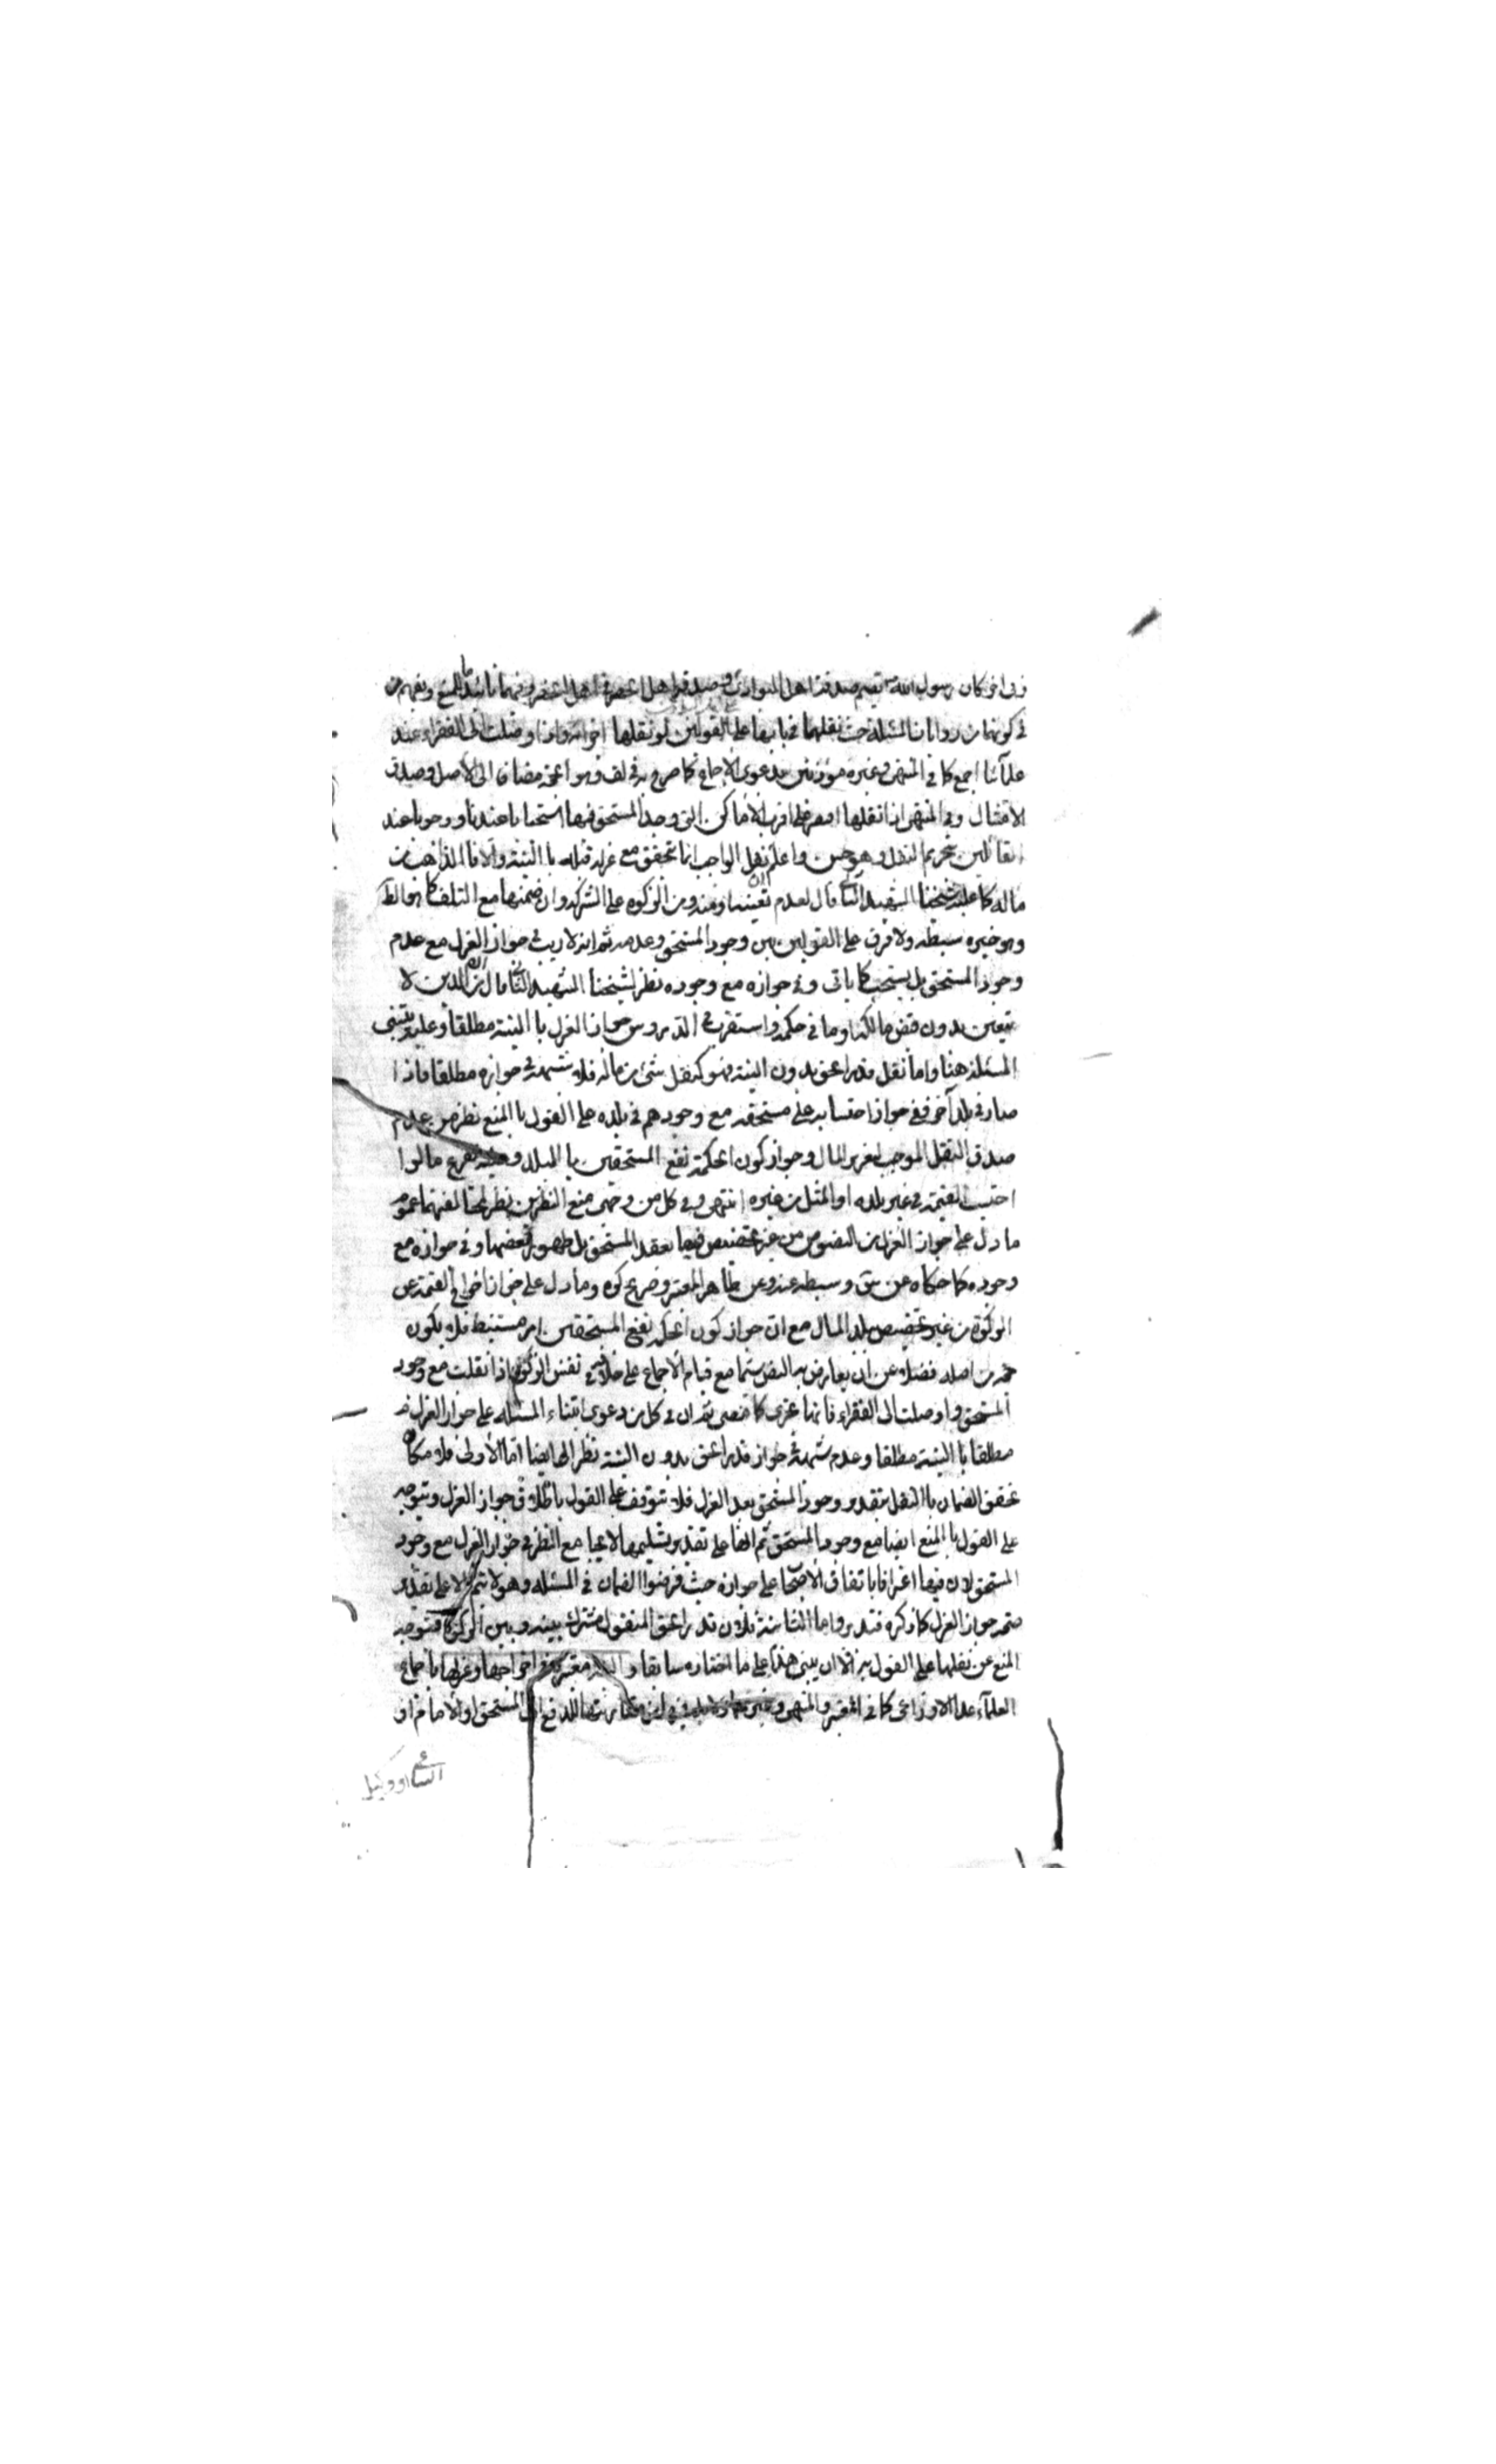 وفى اخر كان رسول الله يقسم صدقة اهل البوادى فى اهل البوادى وصدقة اهل الحضر فى اهل الحضر وفيهما تأييد المنع
فى كونهما من روايات المسئلة حيث نقلهما فى بابها على القولين لو نقلها اجزأته اذا وصلت الى الفقراء عند
علمآئنا اجمع كما فى المنتهى وغيره مؤذنين بدعوى الاجماع كما صرح به فى لف وهو الحجة مضافا الى الاصل وصدق
الامتثال وفى المنتهى اذا نقلها اقتصر على اقرب الاماكن التى وجد المستحق فيها استحبابا عندنا ووجوبا عند
القائلين بتحريم النقل وهو حسن واعلم ان نقل الواجب انما يتحقق مع عزله قبله بالنية والا فالذاهب من
ماله كما عليه شيخنا الشهيد الثانى قال لعدم تعينه وعدوى الزكوة على الشركة وان ضمنها مع التلف
وهو خيره سبطه ولا فرق على القولين بين وجود المستحق وعدمه ثم انه لا ريب فى جواز العزل مع عدم
وجود المستحق بل يستحب كما ياتى وفى جوازه مع وجوده نظر لشيخنا الشهيد الثانى قال من ان الدين لا
يتعين بدون قبض مالكه او ما فى حكمه واستقرب فى الدروس جواز العزل بالنية مطلقا وعليه يبتنى
المسئلة هنا واما نقل قدر الحق بدون النية فهو كنقل شئ من ماله فلا شبهة فى جوازه مطلقا فاذا
صار فى بلد آخر ففى جواز احتسابه على مستحقه مع وجودهم فى بلده على القول بالمنع نظر من عدم
صدق النقل الموجب لغرر المال وجواز كون الحكمة نفع المستحقين بالبلد وعليه يتفرع ما لو
احتسب القيمة فى غير بلده او المثل من غيره انتهى وفى كل من وجهى منع النظرين نظر لمخالفتهما عموم
ما دل على جواز العزل من النصوص من غير تخصيص فيها بفقد المستحق بل ظهور بعضها فى جوازه مع
وجوده كما حكاه عن سق وسبطه عنه وعن ظاهر المعتبر وصريح كره وما دل على جواز اخراج القيمة عن
الزكوة من غير تخصيص ببلد المال مع ان جواز كون الحكمة نفع المستحقين امر مستنبط فلا يكون
حجة من اصله فضلا عن ان يعارض به النص سيما مع قيام الاجماع على خلافه فى نفس الزكوة اذا نقلت مع وجود
المستحق واوصلت الى الفقراء فانها تجزى كما مضى ثم ان فى كل من دعوى ابتناء المسئلة على جواز العزل
مطلقا بالنية مطلقا وعدم شبهة فى جواز قدر الحق بدون النية نظر ايضا اما الاولى فلامكان
تحقق الضمان بالنقل بتقدير وجود المستحق بعد العزل فلا تتوقف على القول باطلاق جواز العزل ويتوجه
على القول بالمنع ايضا مع وجود المستحق ثم انها على تقدير تسليمها لا تجامع النظر فى جواز العزل مع وجود
المستحق لان فيها اعترافا باتفاق الاصحاب على جوازه حيث فرضوا الضمان فى المسئلة وهو لا يتم الا على تقدير
صحة جواز العزل كما ذكره فتدبر واما الثانية فلان قدر الحق المنقول مشترك بينه وبين الزكوة فيتوجه
المنع عن نقلها على القول به الا ان يبنى هذا على ما اختاره سابقا والنية معتبرة فى اخراجها وعزلها باجماع
العلمآء عدا الاوزاعى كما فى المعتبر والمنتهى وغيرهما ولا بد فى مقارنتها للدفع الى المستحق او الامام او
الساعى او وكيل